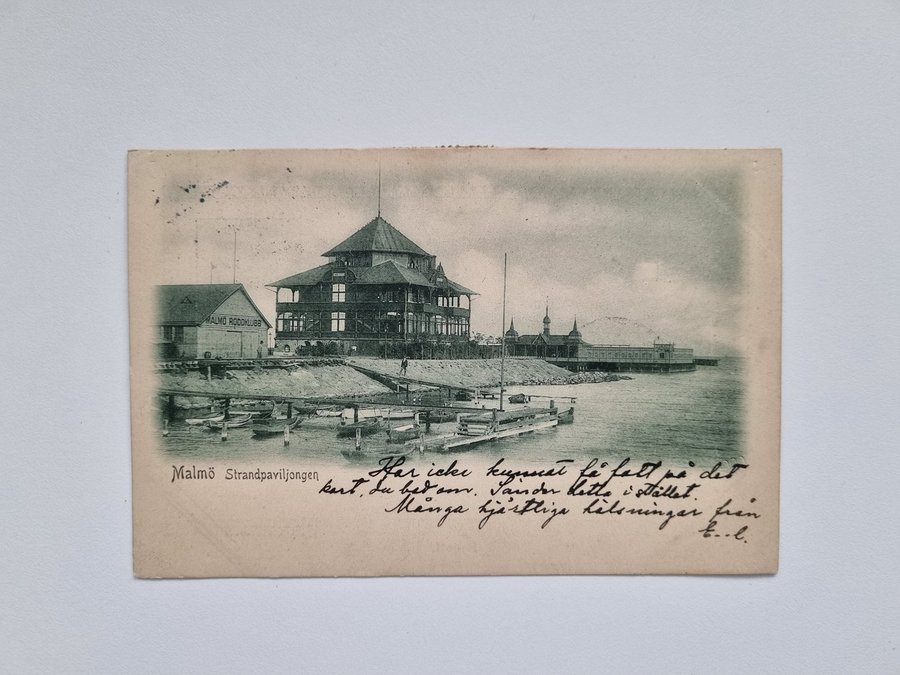 MALMÖ RODDKLUBB
Malmö Strandpaviljongen
Har icke kunnat få fatt på det
kort, du bad om. Sänder detta i stället.
Många hjärtliga hälsningar från
E--l.